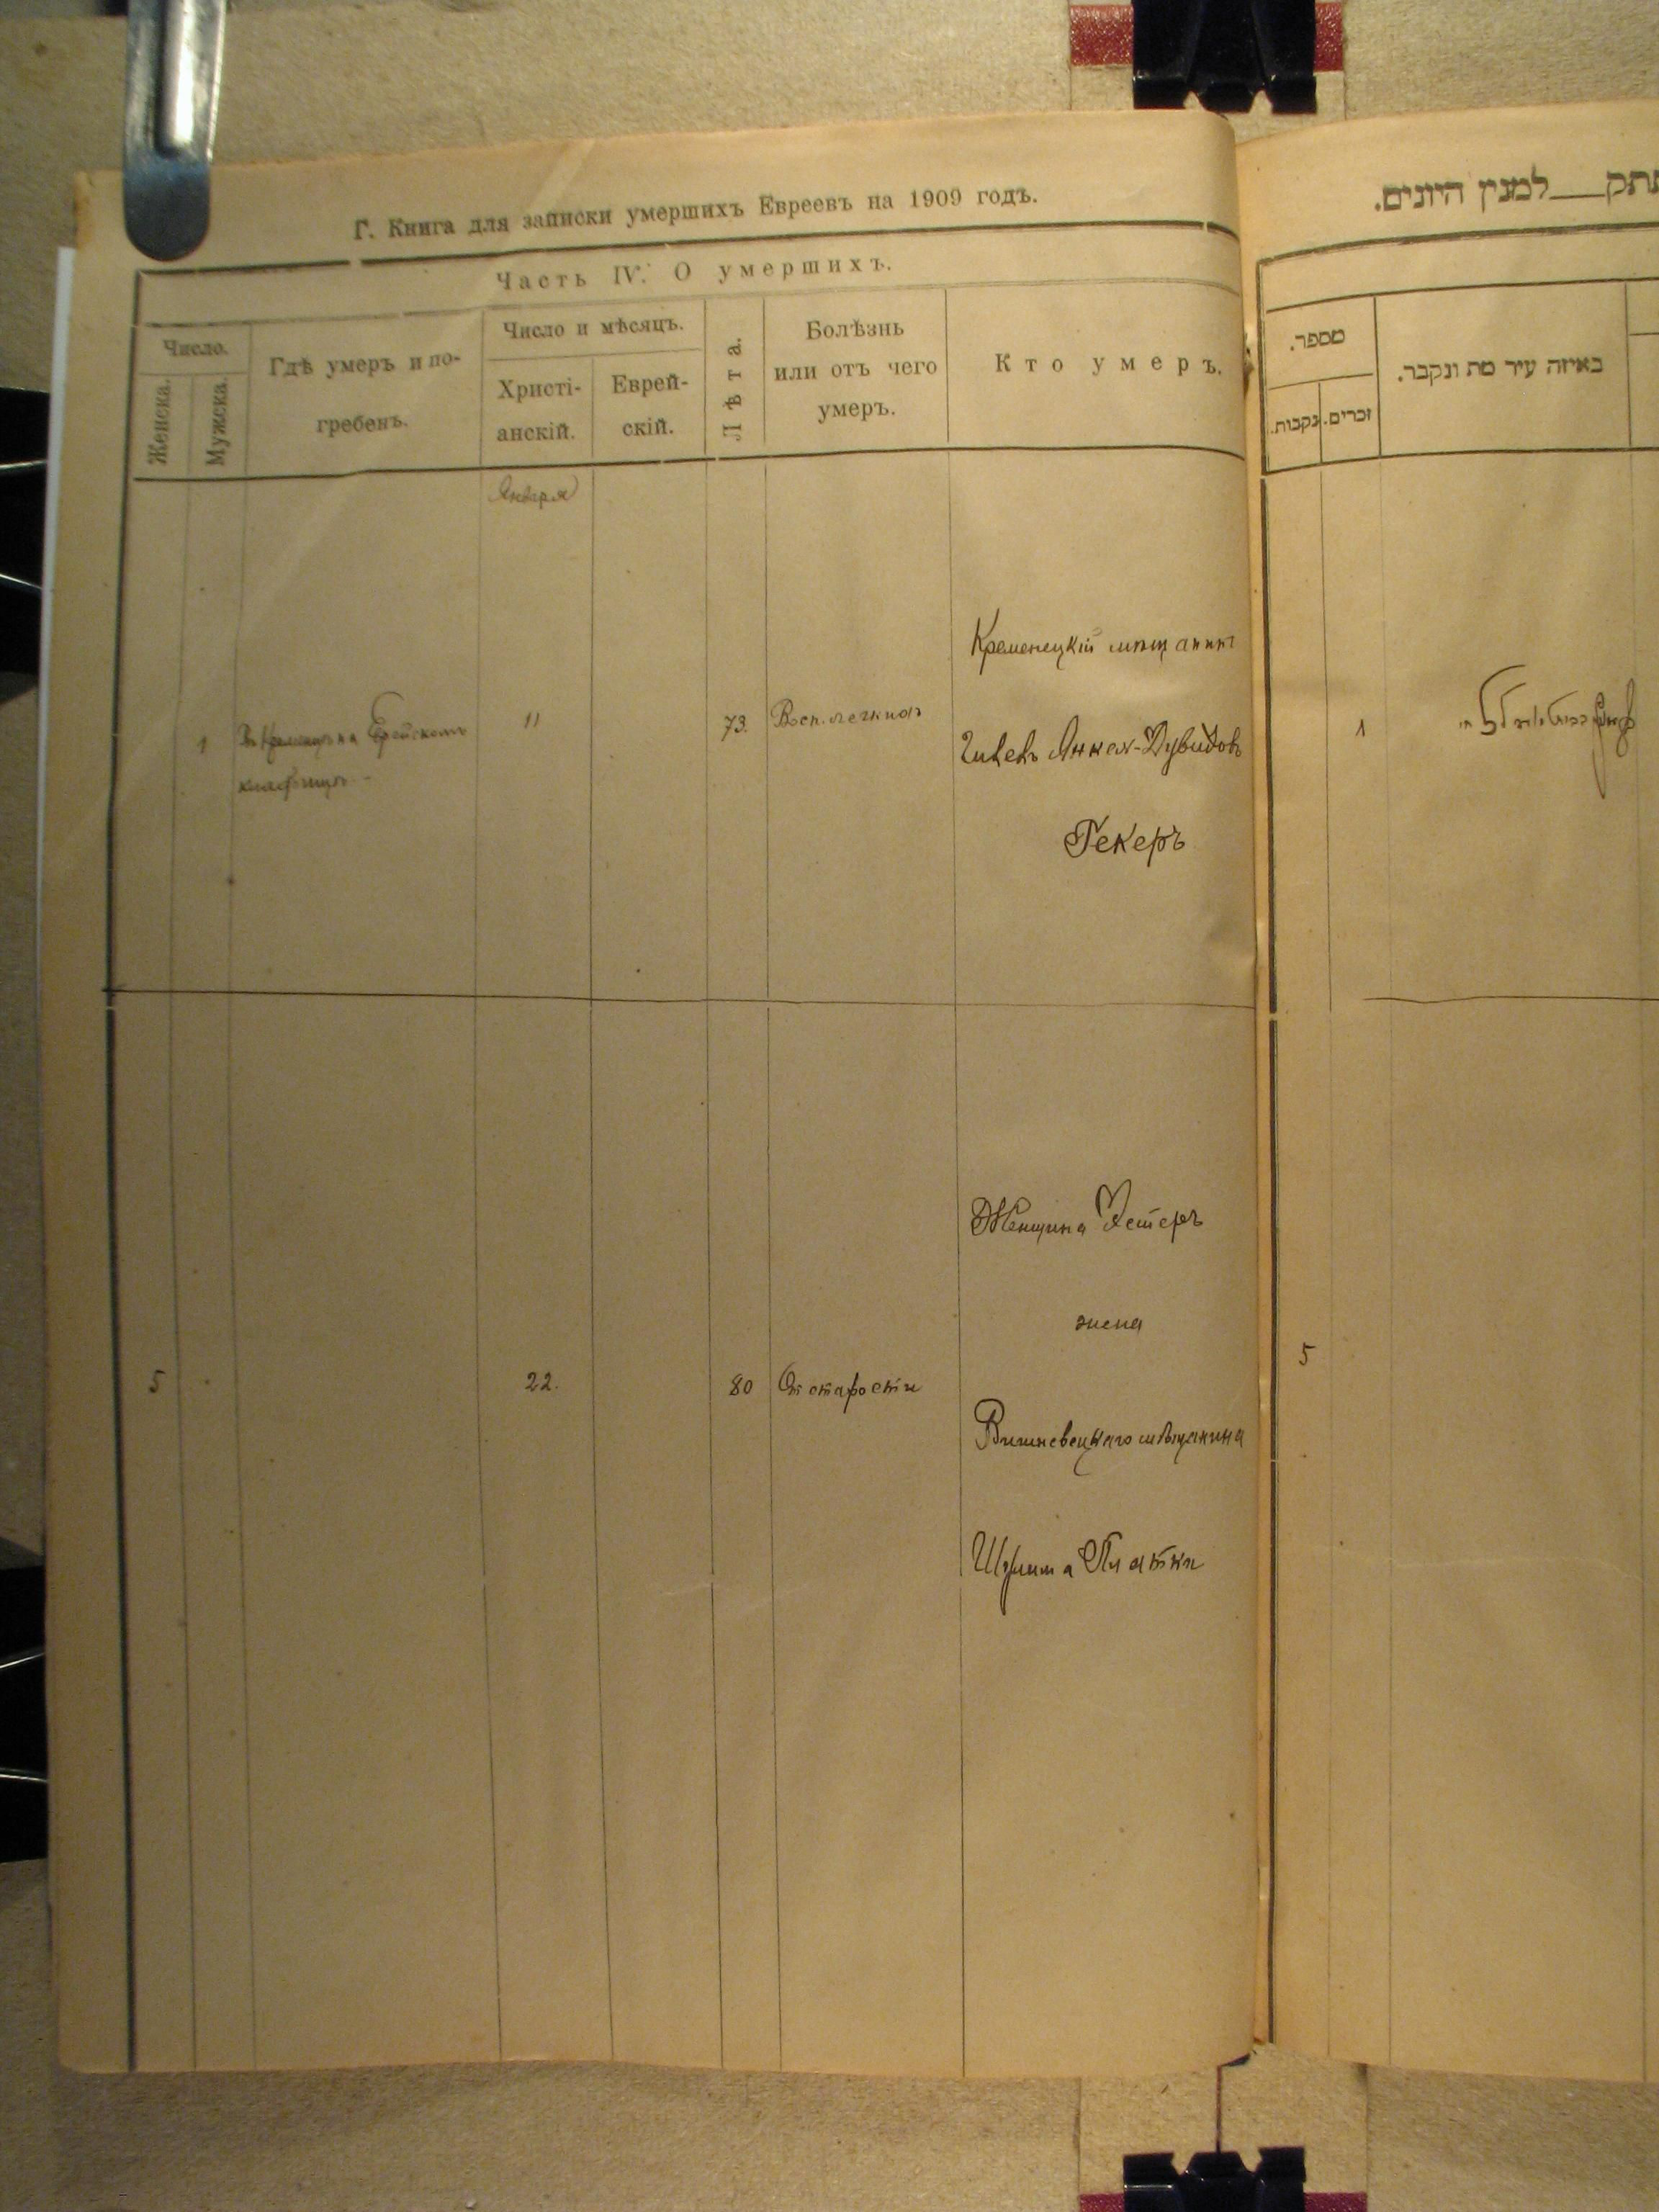 Г. Книга для записки умершихъ Евреевъ на 1909 годъ.
Часть IV. О умершихъ.
Число.
Женска.
Мужска.
Гдѣ умеръ и по-
гребенъ.
Число и мѣсяцъ.
Христі-
анскій.
Еврей-
скій.
Лѣта.
Болѣзнь
или отъ чего
умеръ.
Кто умеръ.
Января
1
11
73.
Восп. легкихъ
Кременецкій мѣщанинъ
Янкел-Дувидовъ
Гекеръ
5
22.
80
От старости
Женщина Хестеръ
жена
Вишневецкаго мѣщанина
למנין היונים.
מספר.
נקבות.
זכרים.
באיזה עיר מת ונקבר.
1
5